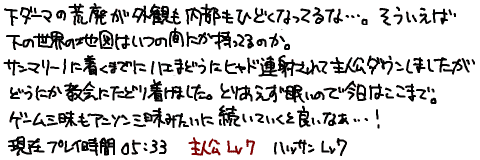 下ダーマの荒廃が外観も内部もひどくなってるな…。そういえば
下の世界の地図はいつの間にか持ってるのか。
サンマリーノに着くまでにハエまどうにヒャド連射されて主人公ダウンしましたが
どうにか教会にたどり着けました。とりあえず眠いので今日はここまで。
ゲーム三昧もアニソン三昧みたいに続いていくと良いなぁ…!
現在プレイ時間 05:33 主人公Lv7 ハッサンLv7